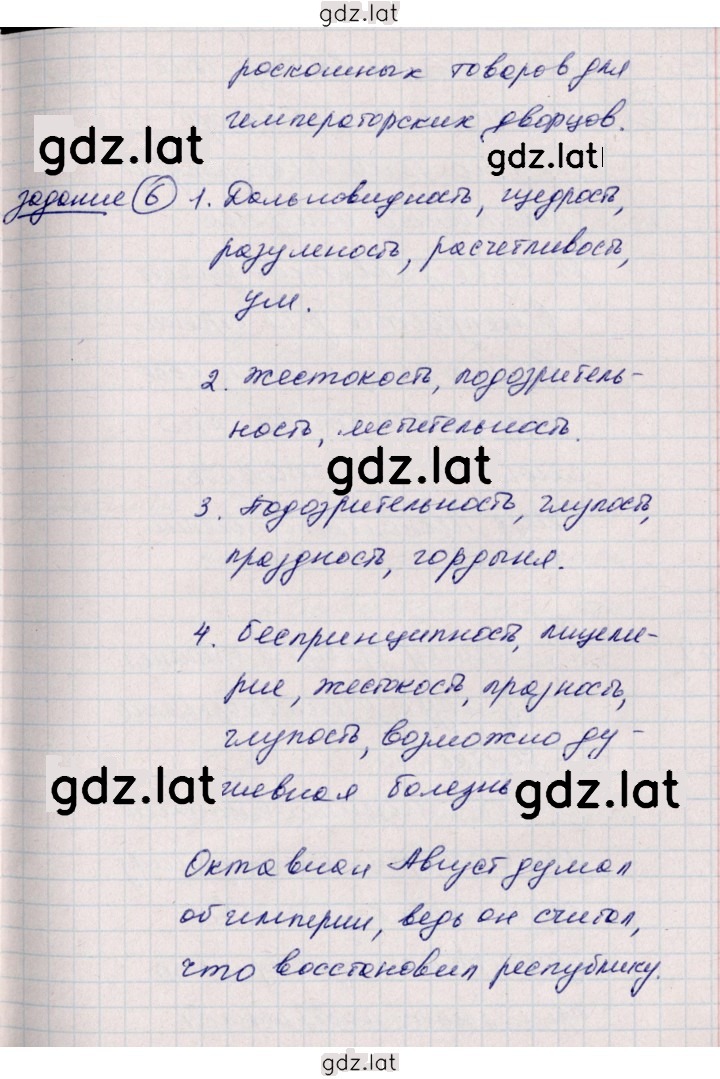 gdz.lat
роскошных товаров для
императорских дворцов.
gdz.lat
gdz.lat
задание 6 1. Дальновидность, щедрость,
разумность, расчетливость,
ум.
2. Жестокость, подозритель-
ность, мстительность.
gdz.lat
3. Подозрительность, глупость,
праздность, гордыня.
4. Беспринципность, лицеме-
рие, жестокость, празность,
глупость, возможно ду-
шевная болезнь
gdz.lat
gdz.lat
Октавиан Август думал
об империи, ведь он считал,
что восстановил республику.
gdz.lat